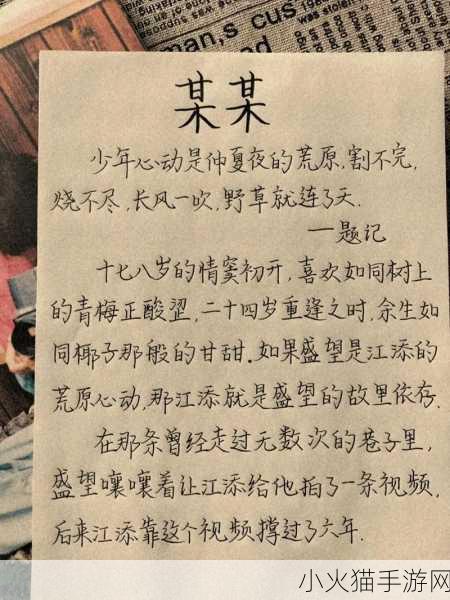 man,s cus
was stolen
某某
少年心动是仲夏夜的荒原,割不完,
烧不尽,长风一吹,野草就连了天.
—题记
十七八岁的情窦初开,喜欢如同树上
的青梅正酸涩,二十四岁重逢之时,余生如
同椰子那般的甘甜.如果盛望是江添的
荒原心动,那江添就是盛望的故里依存.
在那条曾经走过无数次的巷子里,
盛望嚷嚷着让江添给他拍了一条视频,
后来江添靠这个视频撑过了六年.
小火猫手游网